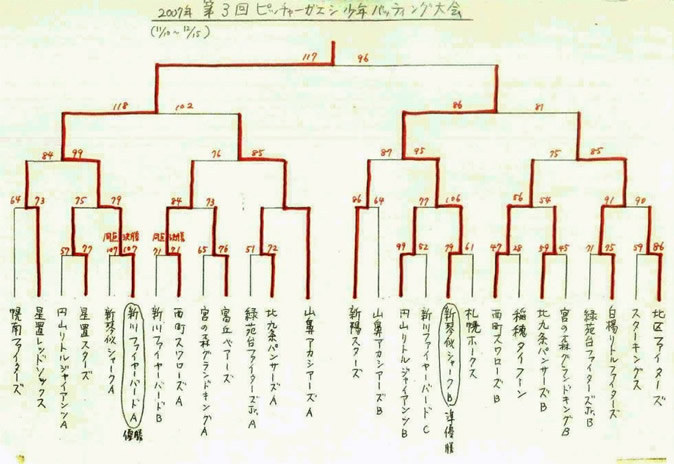 2007年 第3回ピッチャーガエシ少年バッティング大会
(11/10～12/15)
117 96
118 102 86 81
84 99 76 85 87 95 75 85
64 73 75 79 84 73 86 64 77 106 56 54 91 90
同点 決勝 同点 決勝
57 77 107 107 71 71 65 76 51 72 99 82 79 61 47 28 59 45 71 75 59 86
幌南ファイターズ
星置レッドソックス
円山リトルジャイアンツA
星置スターズ
新琴似シャークA
新川ファイヤーバードA
優勝
新川ファイヤーバードB
西町スワローズA
宮の森グランドキングA
富丘ベアーズ
緑苑台ファイターズJr.A
北九条パンサーズA
山鼻アカシアーズA
新陽スターズ
山鼻アカシアーズB
円山リトルジャイアンツB
新川ファイヤーバードC
新琴似シャークB
準優勝
札幌ホークス
西町スワローズB
稲穂タイフーン
北九条パンサーズB
宮の森グランドキングB
緑苑台ファイターズJr.B
白楊リトルファイターズ
スターキングス
北区ファイターズ